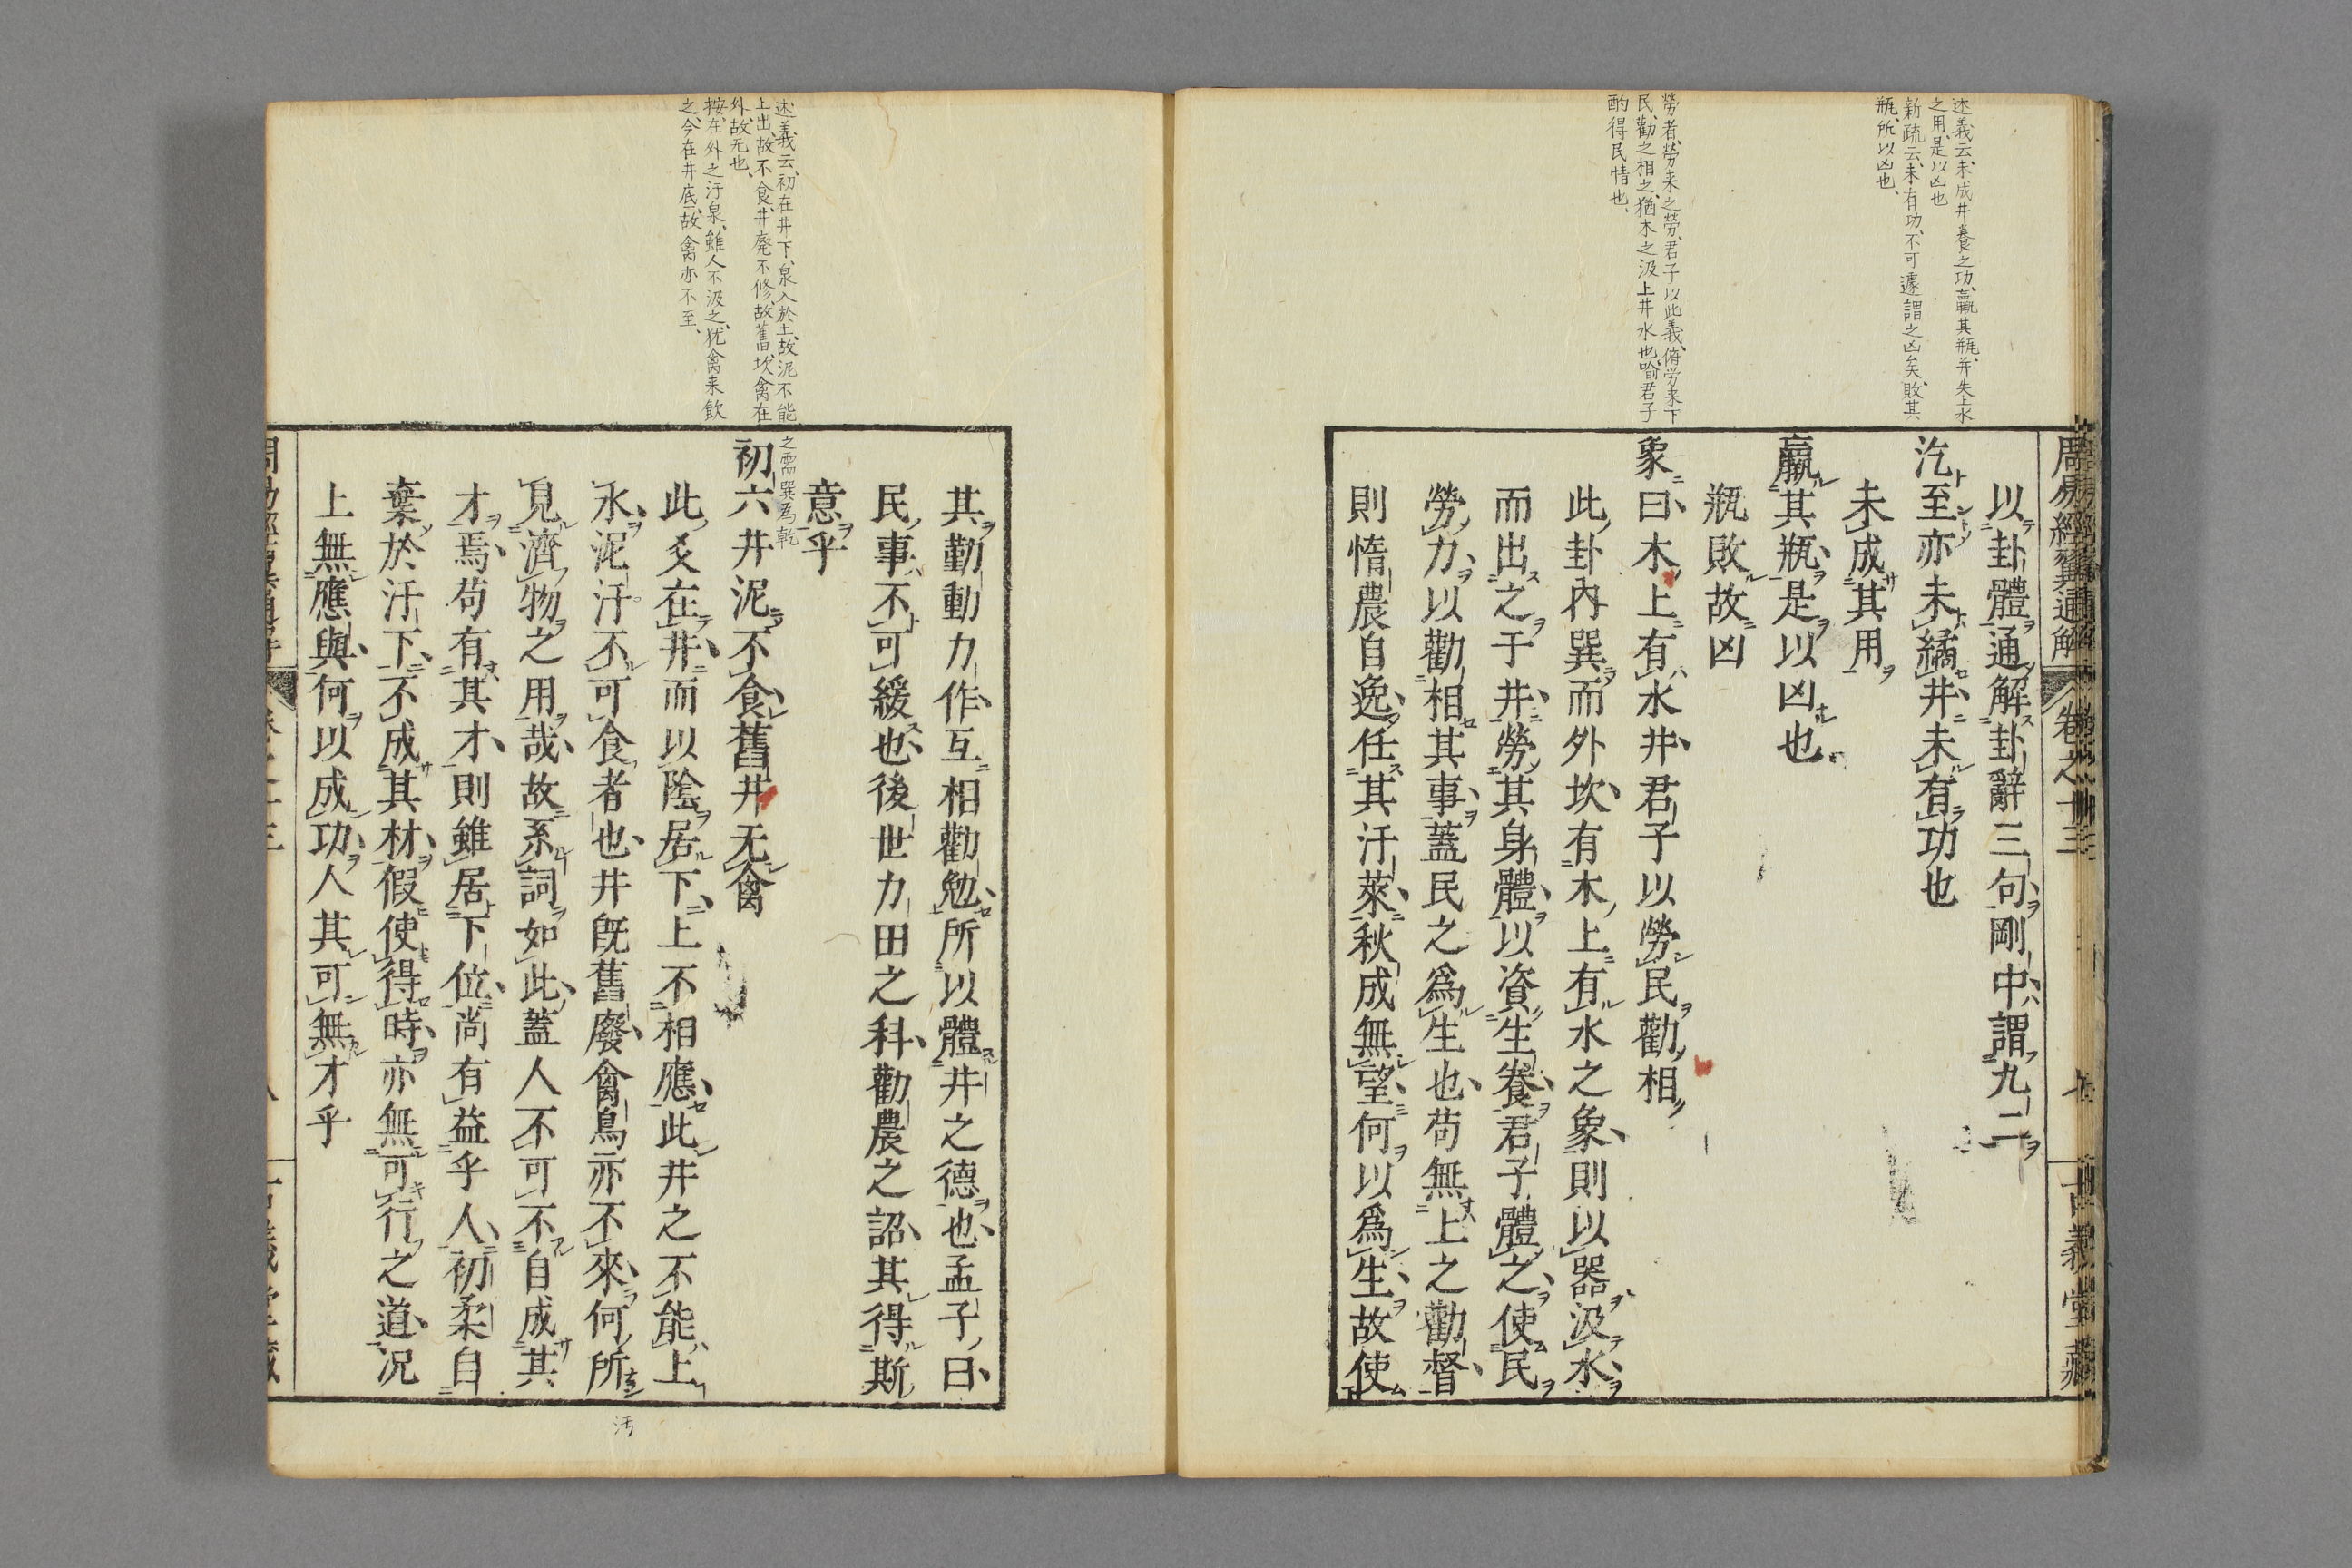 述義云、未成井養之功、羸其瓶、并失上水
之用、是以凶也
新疏云、未有功、不可遽謂之凶矣、敗其
瓶、所以凶也、
勞者、勞来之勞、君子以此義、脩労来下
民、勸之相之、猶木之汲上井水也、喻君子
酌得民情也、
周易經翼通解
卷之十三
七
古義堂藏
以卦體通解卦辭三句剛中謂九二
汔至亦未繘井未有功也
未成其用
羸其瓶是以凶也
瓶敗故凶
象曰木上有水井君子以勞民勸相
此卦內巽而外坎有木上有水之象則以器汲水
而出之于井勞其身體以資生養君子體之使民
勞力以勸相其事蓋民之爲生也苟無上之勸督
則惰農自逸任其汙萊秋成無望何以爲生故使
述義云、初在井下、泉入於土、故泥不能
上出、故不食、井廃不修、故舊、坎禽在
外、故无也、
按、在外之汙泉、雖人不汲之、犹禽来飲
之、今在井底、故禽亦不至、
其勤動力作互相勸勉所以體井之德也孟子曰
民事不可緩也後世力田之科勸農之詔其得斯
意乎
之需 巽為乾
初六井泥不食舊井无禽
此爻在井而以陰居下上不相應此井之不能上
水泥汙不可食者也井既舊廢禽鳥亦不來何所
見濟物之用哉故系詞如此蓋人不可不自成其
才焉苟有其才則雖居下位尚有益乎人初柔自
棄於汙下不成其材假使得時亦無可行之道况
上無應與何以成功人其可無才乎
汚